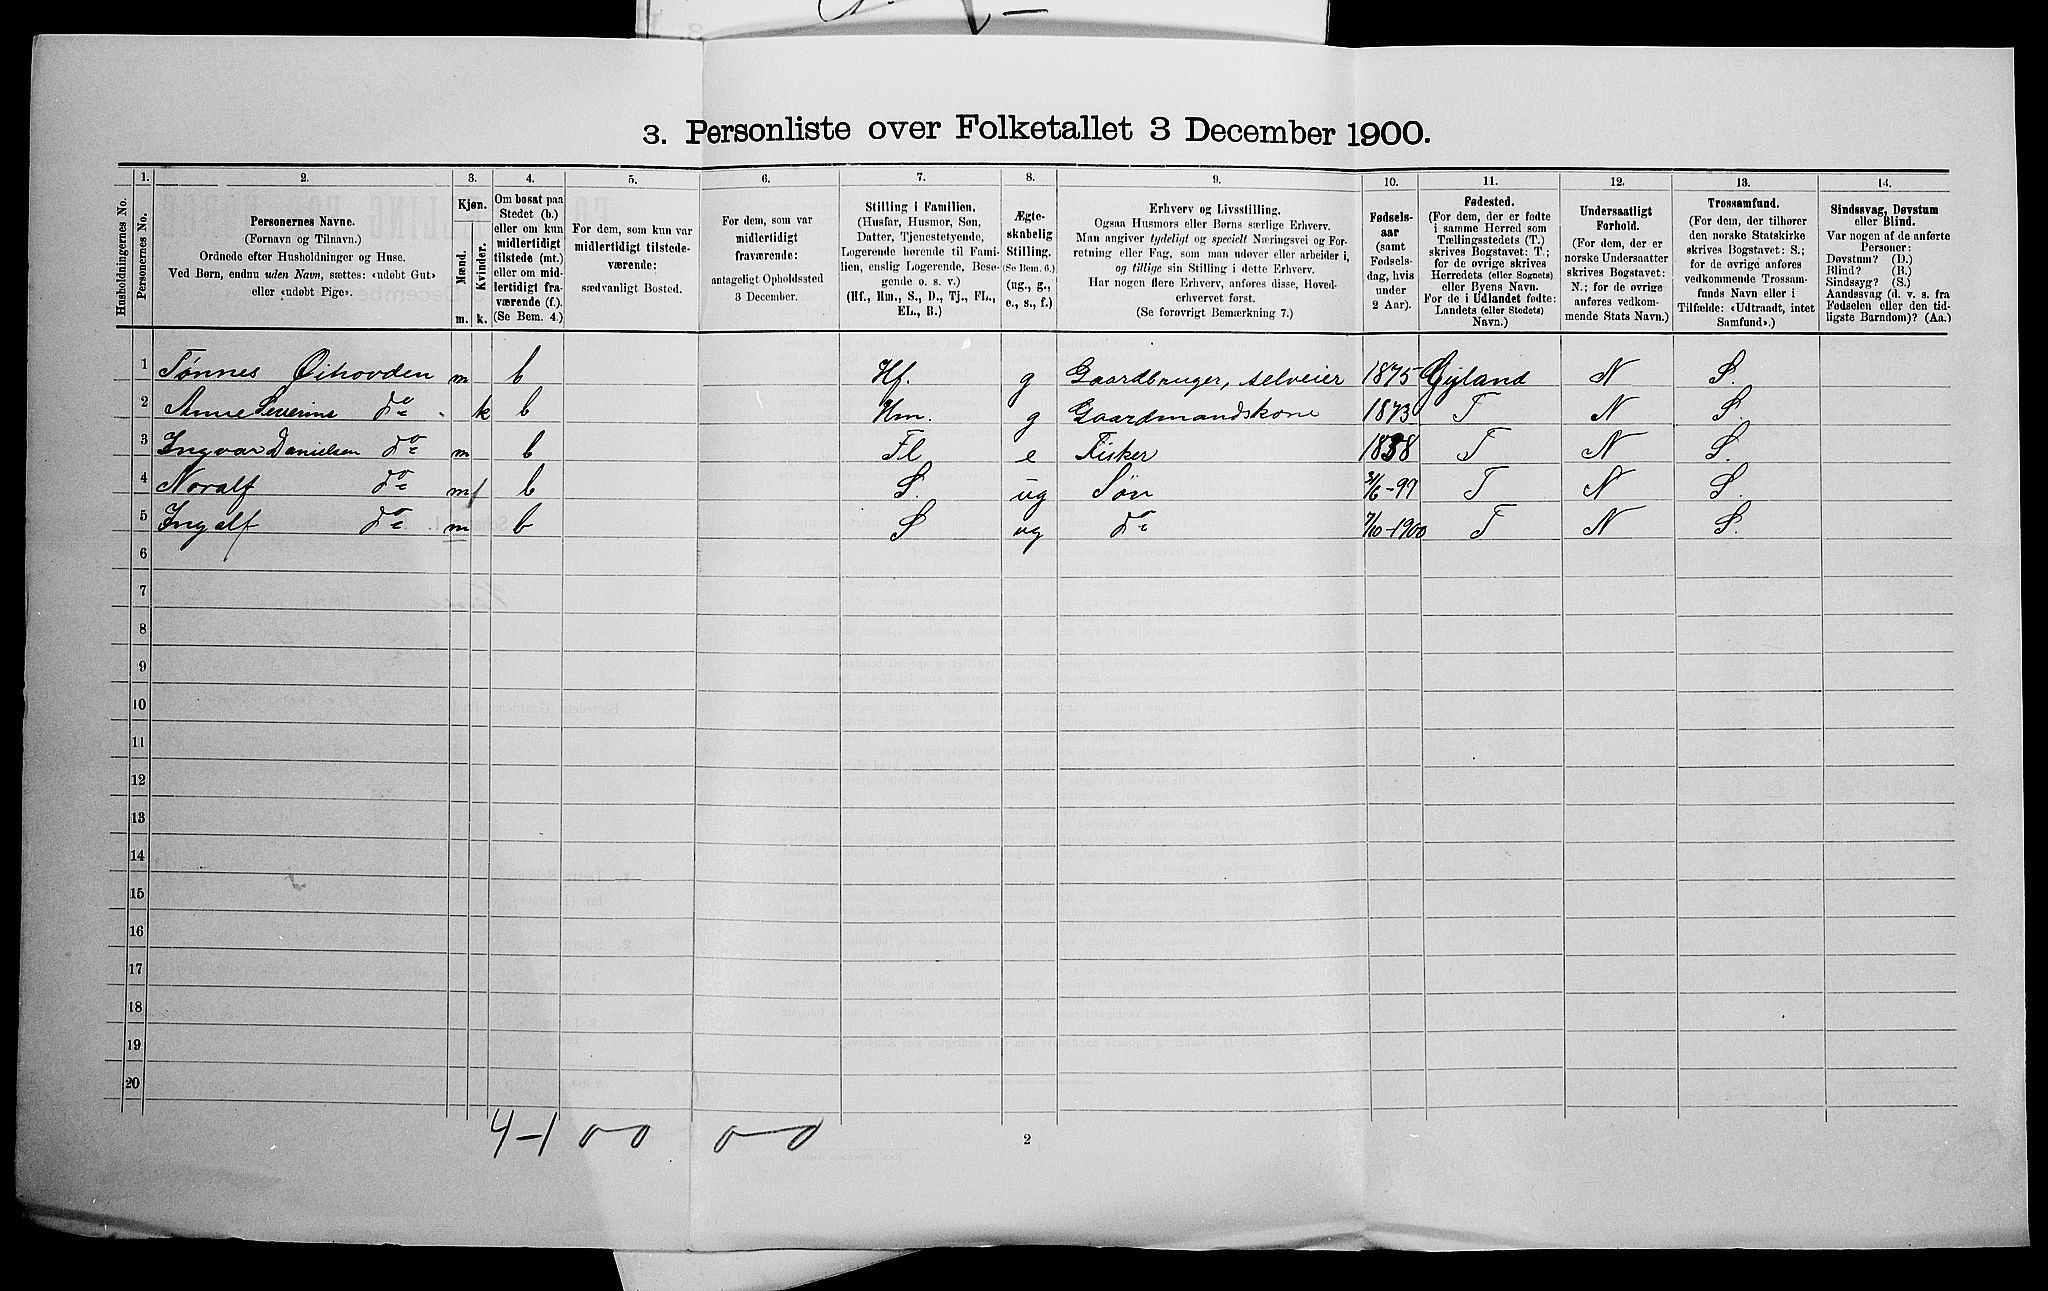 3. Personliste over Folketallet 3 December 1900.
1. 2. 3. 4. 5. 6. 7. 8. 9. 10. 11. 12. 13. 14.
Husholdningernes No.
Personernes No.
Personernes Navne.
(Fornavn og Tilnavn.)
Ordnede efter Husholdninger og Huse.
Ved Børn, endnu uden Navn, sættes: «udøbt Gut»
eller «udøbt Pige».
Kjøn.
Mænd.
Kvinder.
m. k.
Om bosat paa
Stedet (b.)
eller om kun
midlertidigt
tilstede (mt.)
eller om mid-
lertidigt fra-
værende (f.).
(Se Bem. 4.)
For dem, som kun var
midlertidigt tilstede-
værende:
sædvanligt Bosted.
For dem, som var
midlertidigt
fraværende:
antageligt Opholdssted
3 December.
Stilling i Familien.
(Husfar, Husmor, Søn,
Datter, Tjenestetyende,
Logerende hørende til Fami-
lien, enslig Logerende, Besø-
gende o. s. v.)
(Hf., Hm., S., D., Tj., FL.,
EL., B.)
Ægte-
skabelig
Stilling.
(Se Bem. 6.)
(ug., g.,
e., s., f.)
Erhverv og Livsstilling.
Ogsaa Husmors eller Børns særlige Erhverv.
Man angiver tydeligt og specielt Næringsvei og For-
retning eller Fag, som man udøver eller arbeider i,
og tillige sin Stilling i dette Erhverv.
Har nogen flere Erhverv, anføres disse, Hoved-
erhvervet først.
(Se forøvrigt Bemærkning 7.)
Fødsels-
aar
(samt
Fødsels-
dag, hvis
under
2 Aar).
Fødested.
(For dem, der er fødte
i samme Herred som
Tællingsstedets (T.)
skrives Bogstavet: T.;
for de øvrige skrives
Herredets (eller Sognets)
eller Byens Navn.
For de i Udlandet fødte:
Landets (eller Stedets)
Navn.)
Undersaatligt
Forhold.
(For dem, der er
norske Undersaatter
skrives Bogstavet:
N.; for de øvrige
anføres vedkom-
mende Stats Navn.)
Trossamfund.
(For dem, der tilhører
den norske Statskirke
skrives Bogstavet: S.;
for de øvrige anføres
vedkommende Trossam-
funds Navn eller i
Tilfælde: «Udtraadt, intet
Samfund».)
Sindssvag, Døvstum
eller Blind.
Var nogen af de anførte
Personer:
Døvstum? (D.)
Blind? (B.)
Sindssyg? (S.)
Aandssvag (d. v. s. fra
Fødselen eller den tid-
ligste Barndom)? (Aa.)
1 Tønnes Øihovden m b Hf. g Gaardbruger, selveier 1875 Gyland N S.
2 Anne Severine do k b Hm. g Gaardmandskone 1873 T N S.
3 Ingvar Danielsen do m b Fl e Fisker 1838 T N S.
4 Noralf do m b S. ug Søn 3/6-99 T N S.
5 Ingalf do m b S ug do 7/10-1900 T N S.
6
7
8
9
10
11
12
13
14
15
16
17
18
19
20
4-1 0 0 0-0
2